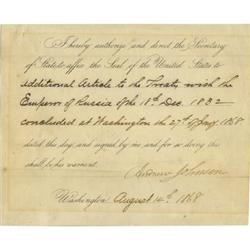 I hereby authorize and direct the Secretary
of State to affix the Seal of the United States to
additional Article to the Treaty with the
Emperor of Russia of the 18th Dec. 1832
concluded at Washington the 27th of Jany 1868
dated this day, and signed by me and for so doing this
shall be his warrant.
Andrew Johnson
Washington August 14th 1868